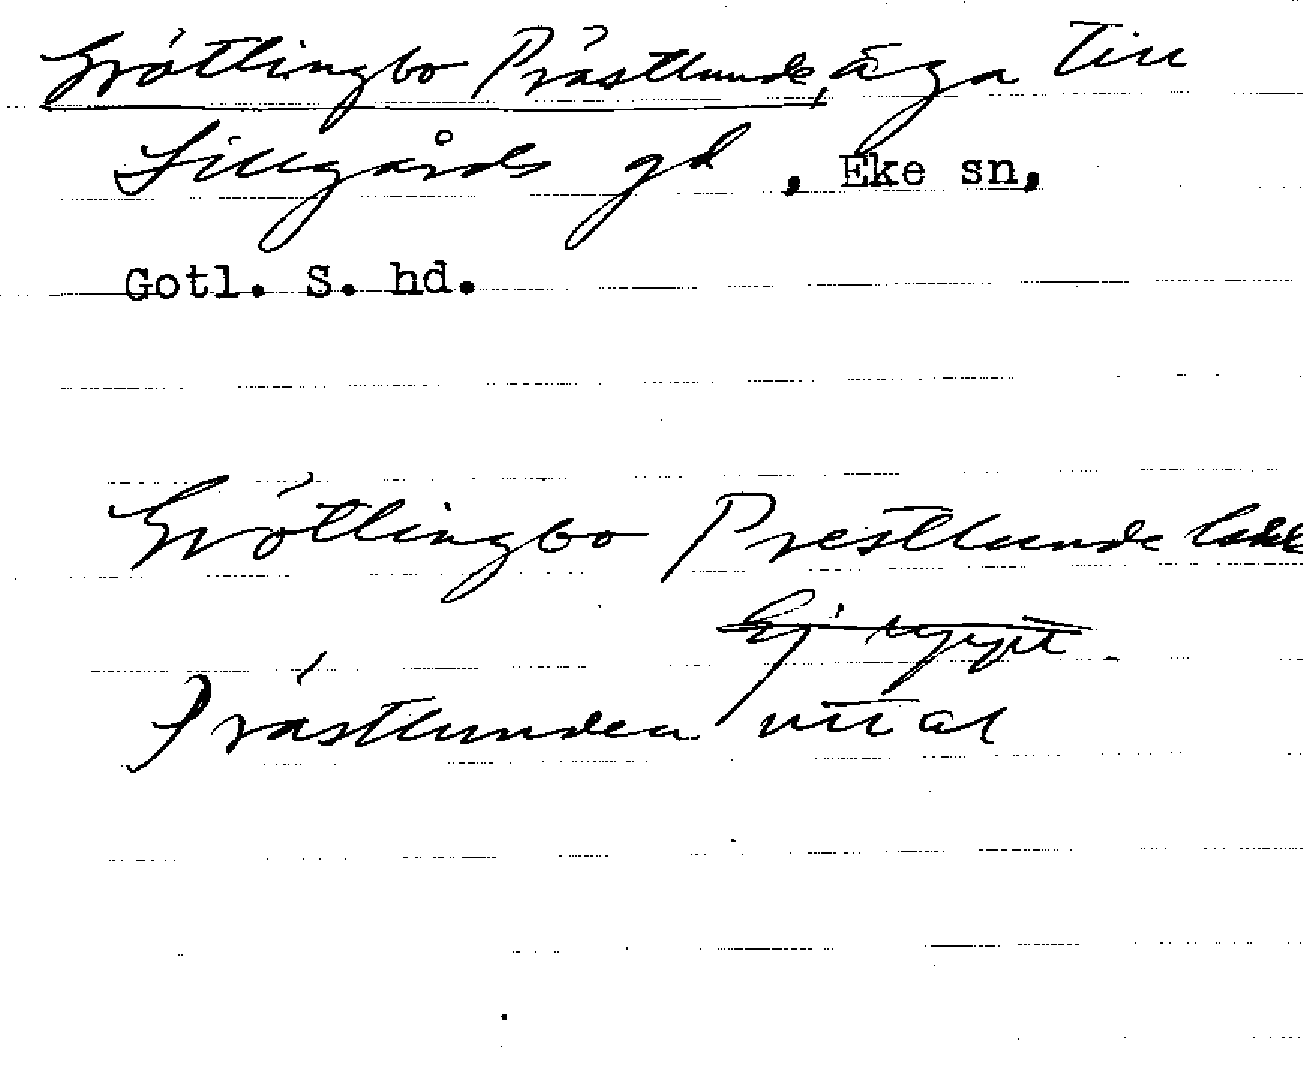 Grötlingbo Prästlunde, äga till
Lillgårds gd, Eke sn,
Gotl. S. hd.
Grötlingbo Prestlunde
Ej rypt.
Prästlunden